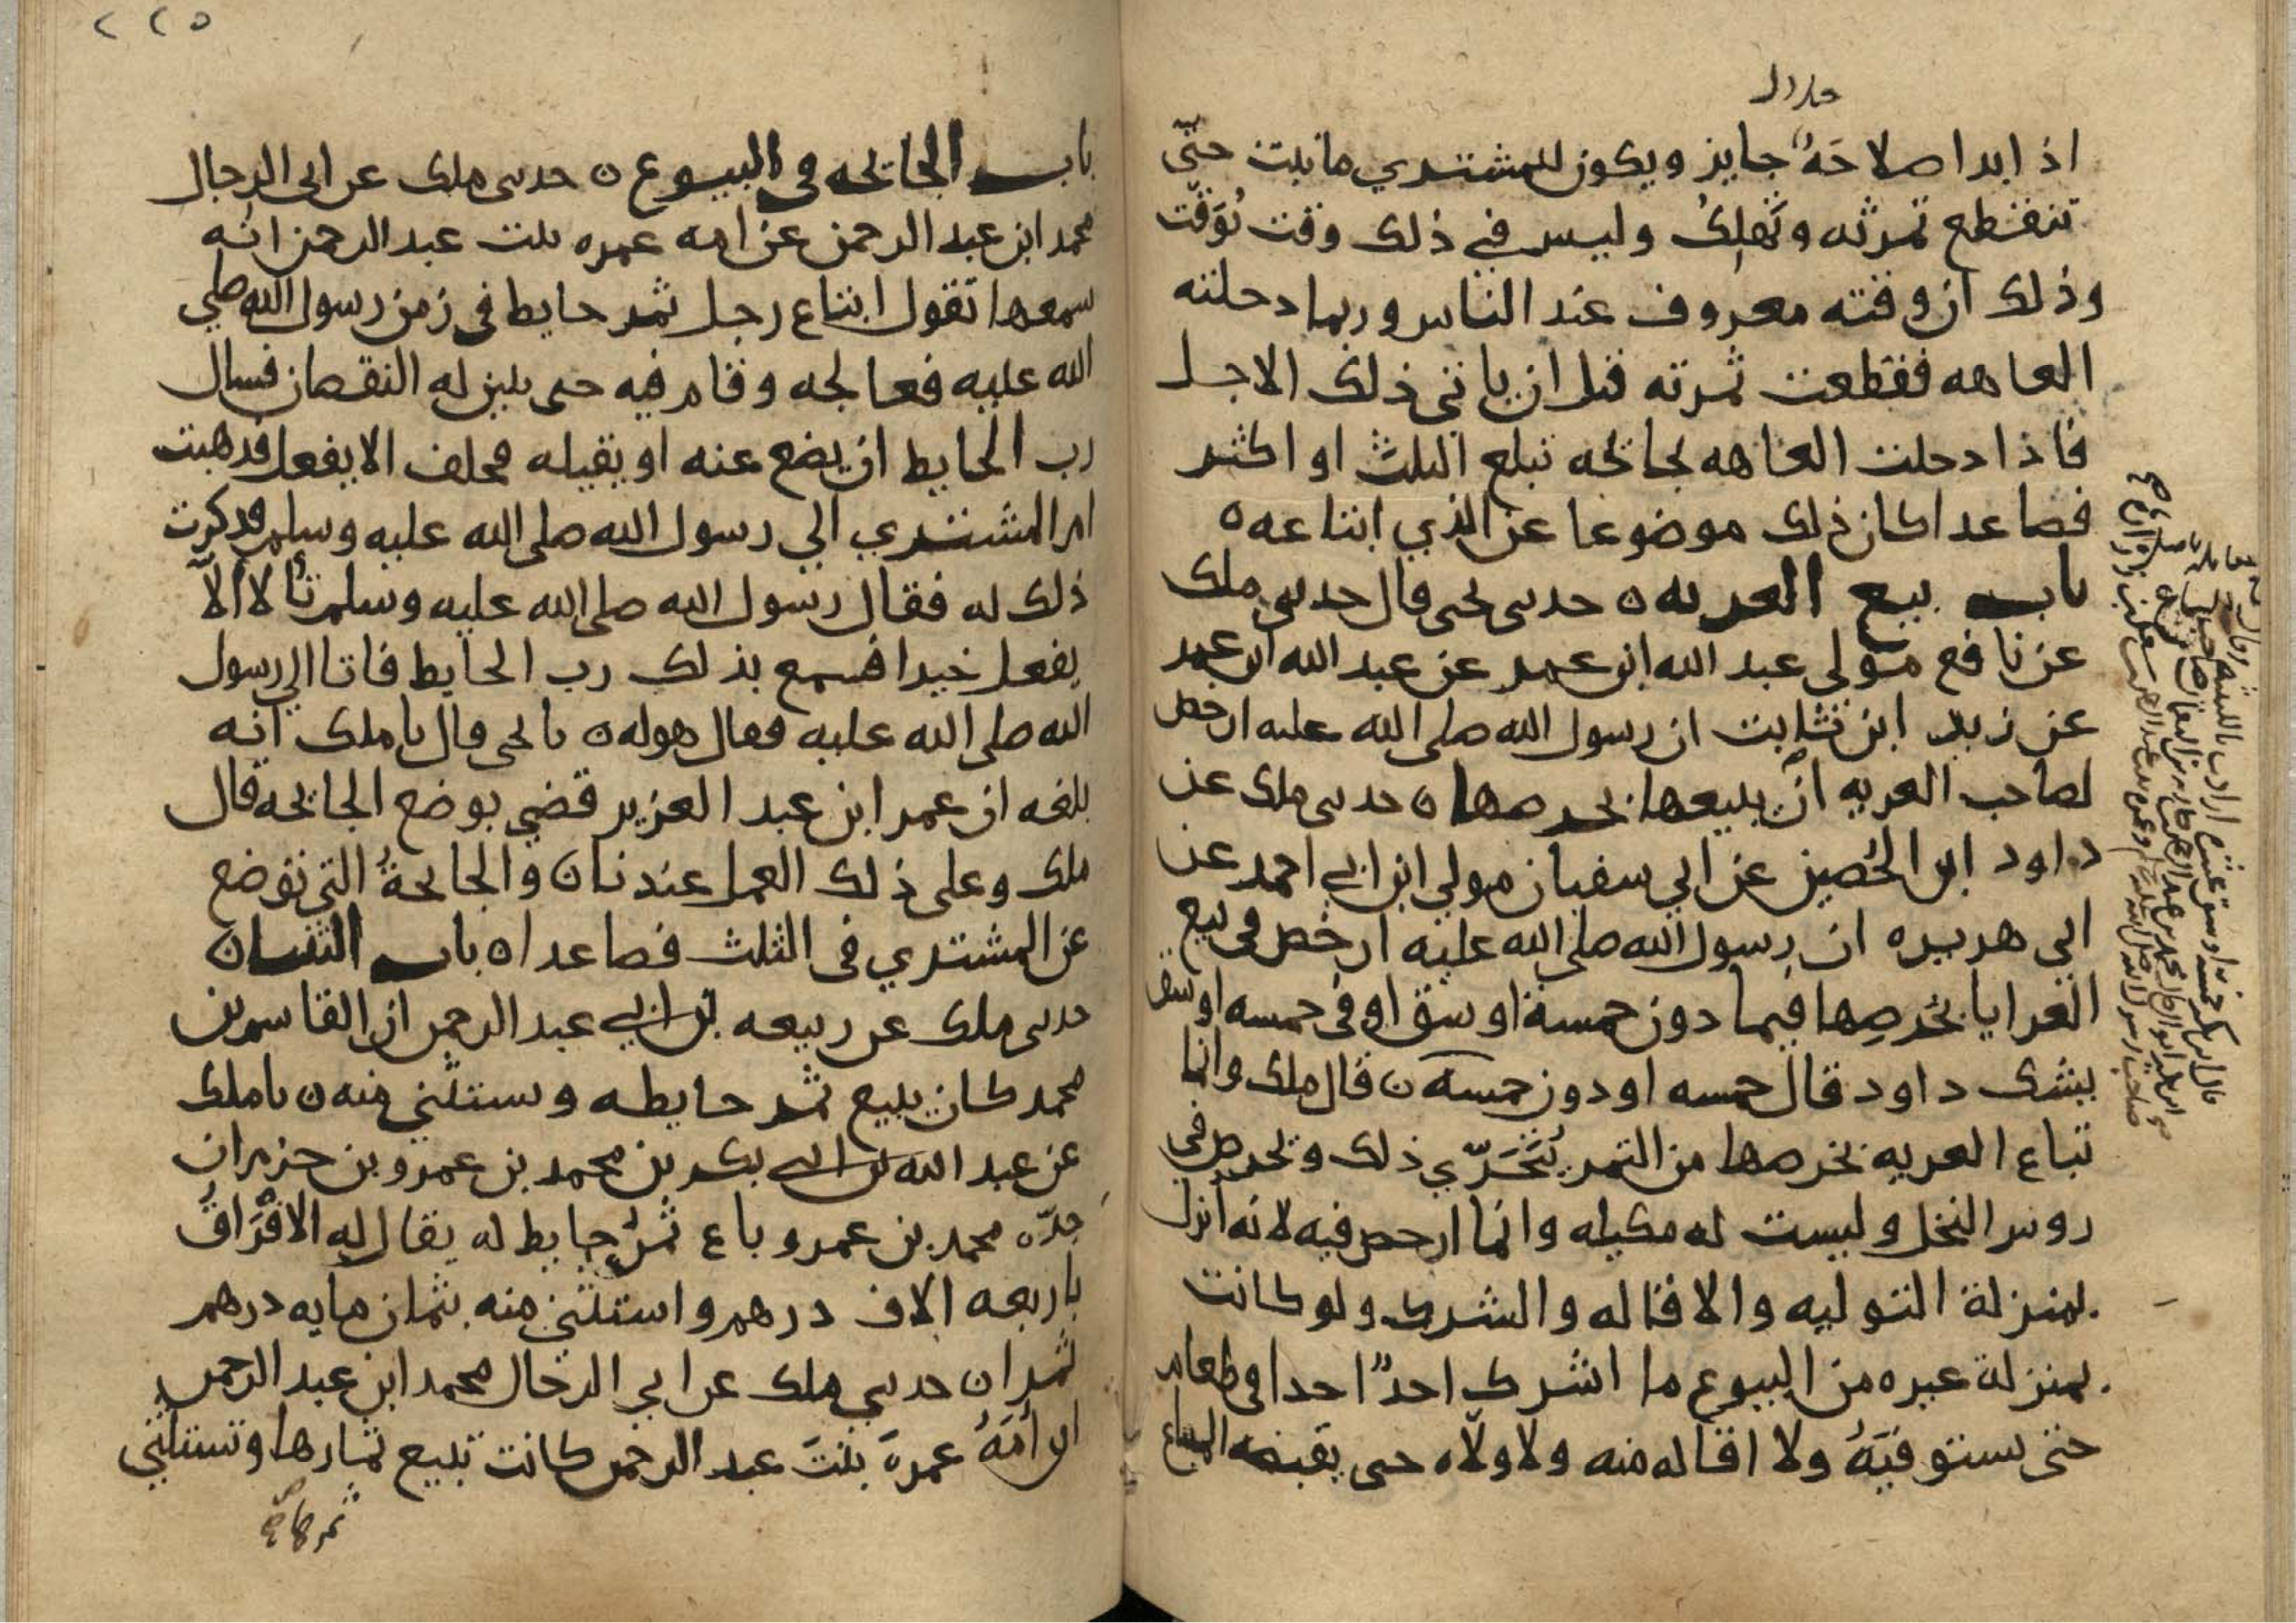 حلال
اذا بدا صلاحه جايز ويكون للمشتري ما نبت حتّى
تنقطع ثمرته وتهلك وليس في ذلك وقت توقّت
وذلك ان وقته معروف عند الناس وربما دخلته
العاهه فقطعت ثمرته قبل ان ياتي ذلك الاجل
فاذا دخلت العاهه بجائحه تبلع الثلث او اكثر
فصاعدا كان ذلك موضوعا عن الذي ابتاعه ه
باب بيع العريه ه حدثني يحيى قال حدثني ملك
عن نافع مولى عبد الله ابن عمر عن عبد الله ابن عمر
عن زيد ابن ثابت ان رسول الله صلى الله عليه ارخص
لصاحب العريه ان يبيعها بخرصها ه حدثني ملك عن
داود ابن الحُصين عن ابي سفيان مولى ابن ابي احمد عن
ابي هريره ان رسول الله صلى الله عليه ارخص في بيع
العرايا بخرصها فيما دون خمسة اوسق او في خمسه اوسق
يشك داود قال خمسه او دون خمسه ن قال ملك وانما
تباع العريه بخرصها من التمر يُتَحَرّي ذلك ويخرص في
روس النخل وليست له مكيله وانما ارخص فيه لانه انزل
بمنزلة التوليه والاقاله والشرك ولو كانت
بمنزلة غيره من البيوع ما اشرك احدٌ احدا في طعام
حتى يستوفيَهُ ولا اقاله منه ولا ولّاه حتى يقبضه المبتاع
٢٢٥
باب الجائحه في البيوع ه حدثني ملك عن ابي الرجال
محمد ابن عبد الرحمن عن امه عمره بنت عبد الرحمن انه
سمعها تقول ابتاع رجل ثمر حايط في زمن رسول الله صلي
الله عليه فعالجه وقام فيه حتى يبين له النقصان فسال
رب الحايط ان يضع عنه او يقيله فحلف الا يفعل فذهبت
ام المشتري الي رسول الله صلى الله عليه وسلم فذكرت
ذلك له فقال رسول الله صلى الله عليه وسلم تألا ألاّ
يفعل خيرا فسمع بذلك رب الحايط فاتا الي رسول
الله صلى الله عليه فقال هو له ه نا يحيى قال نا ملك انه
بلغه ان عمر ابن عبد العزيز قضي بوضع الجائحه قال
ملك وعلى ذلك العمل عندنا ن والجائحةُ التي توضع
عن المشتري في الثلث فصاعدا ه باب الثنيا ن
حدثني ملك عن ربيعه بن ابي عبد الرحمن ان القاسم بن
محمد كان يبيع ثمر حايطه ويستثني منه ن نا ملك
عن عبد الله بن ابي بكر بن محمد بن عمرو بن حزم ان
جدّه محمد بن عمرو باع ثمر حايط له يقال له الافْرَاقُ
باربعه الاف درهم واستثني منه بثمان مايه درهم
ثمرا ن حدثني ملك عن ابي الرجال محمد ابن عبد الرحمن
ان اُمّهُ عمرةَ بنتَ عبد الرحمن كانت تبيع ثمارها وتستثني